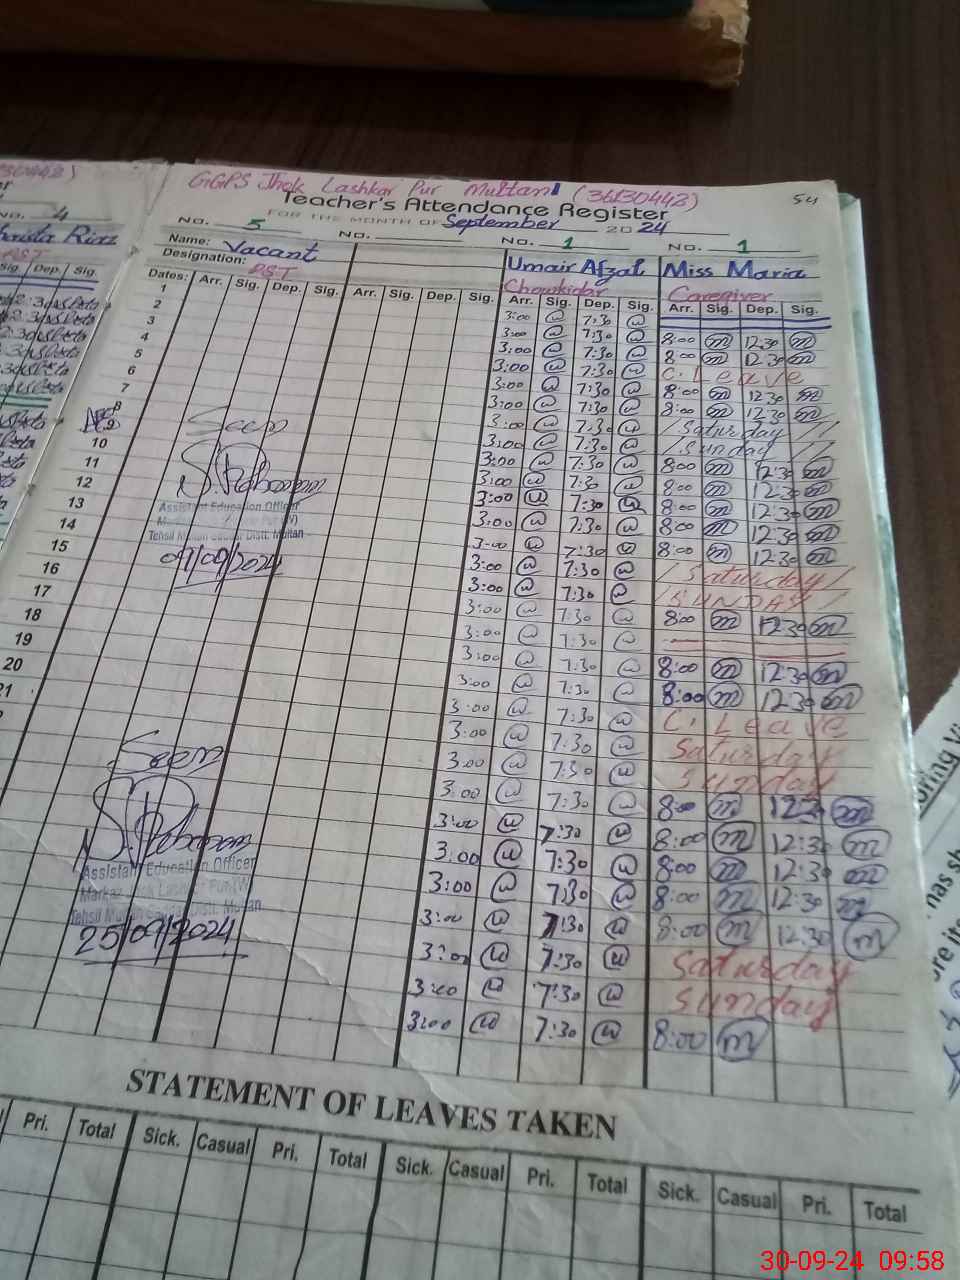 GGPS Jhok Lashkar Pur Multan (36130442)
Teacher's Attendance Register
FOR THE MONTH OF September 2024
54
No. 4
No. 5 No. No. 1 No. 1
Riaz
Name: Vacant
Umair Afzal Miss Maria
Designation: PST
Chowkidar Caregiver
Sig. Dep. Sig.
Dates: Arr. Sig. Dep. Sig. Arr. Sig. Dep. Sig. Arr. Sig. Dep. Sig. Arr. Sig. Dep. Sig.
1 3:00 7:30
2 3:00 7:30 8:00 m 12:30 m
3 3:00 7:30 8:00 m 12:30 m
4 3:00 7:30 C. Leave
5 3:00 7:30 8:00 m 12:30 m
6 3:00 7:30 8:00 m 12:30 m
7 3:00 7:30 Saturday
8 3:00 7:30 Sunday
9 3:00 7:30 8:00 m 12:30 m
10 3:00 7:30 8:00 m 12:30 m
11 3:00 7:30 8:00 m 12:30 m
12 3:00 7:30 8:00 m 12:30 m
13 3:00 7:30 8:00 m 12:30 m
14 3:00 7:30 Saturday
15 3:00 7:30 SUNDAY
16 3:00 7:30 8:00 m 12:30 m
17 3:00 7:30
18 3:00 7:30 8:00 m 12:30 m
19 3:00 7:30 8:00 m 12:30 m
20 3:00 7:30 C. Leave
21 3:00 7:30 Saturday
3:00 7:30 Sunday
3:00 7:30 8:00 m 12:30 m
3:00 7:30 8:00 m 12:30 m
3:00 7:30 8:00 m 12:30 m
3:00 7:30 8:00 m 12:30 m
3:00 7:30 8:00 m 12:30 m
3:00 7:30 Saturday
3:00 7:30 Sunday
3:00 7:30 8:00 m
Seen
Assistant Education Officer
Tehsil Multan Saddar Distt: Multan
Seen
Assistant Education Officer
Markaz Jhok Lashkar Pur(W)
Tehsil Multan Saddar Distt: Multan
25/09/2024
STATEMENT OF LEAVES TAKEN
Pri. Total Sick. Casual Pri. Total Sick. Casual Pri. Total Sick. Casual Pri. Total
has
30-09-24 09:58